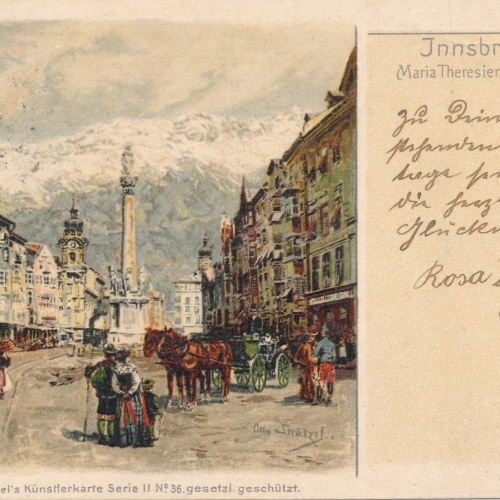 Innsbr
Maria Theresien
Zu Dein
stehenden
tage sen
die herz
Glückw
Rosa
Otto Strützel.
el's Künstlerkarte Serie II No 36. gesetzl. geschützt.